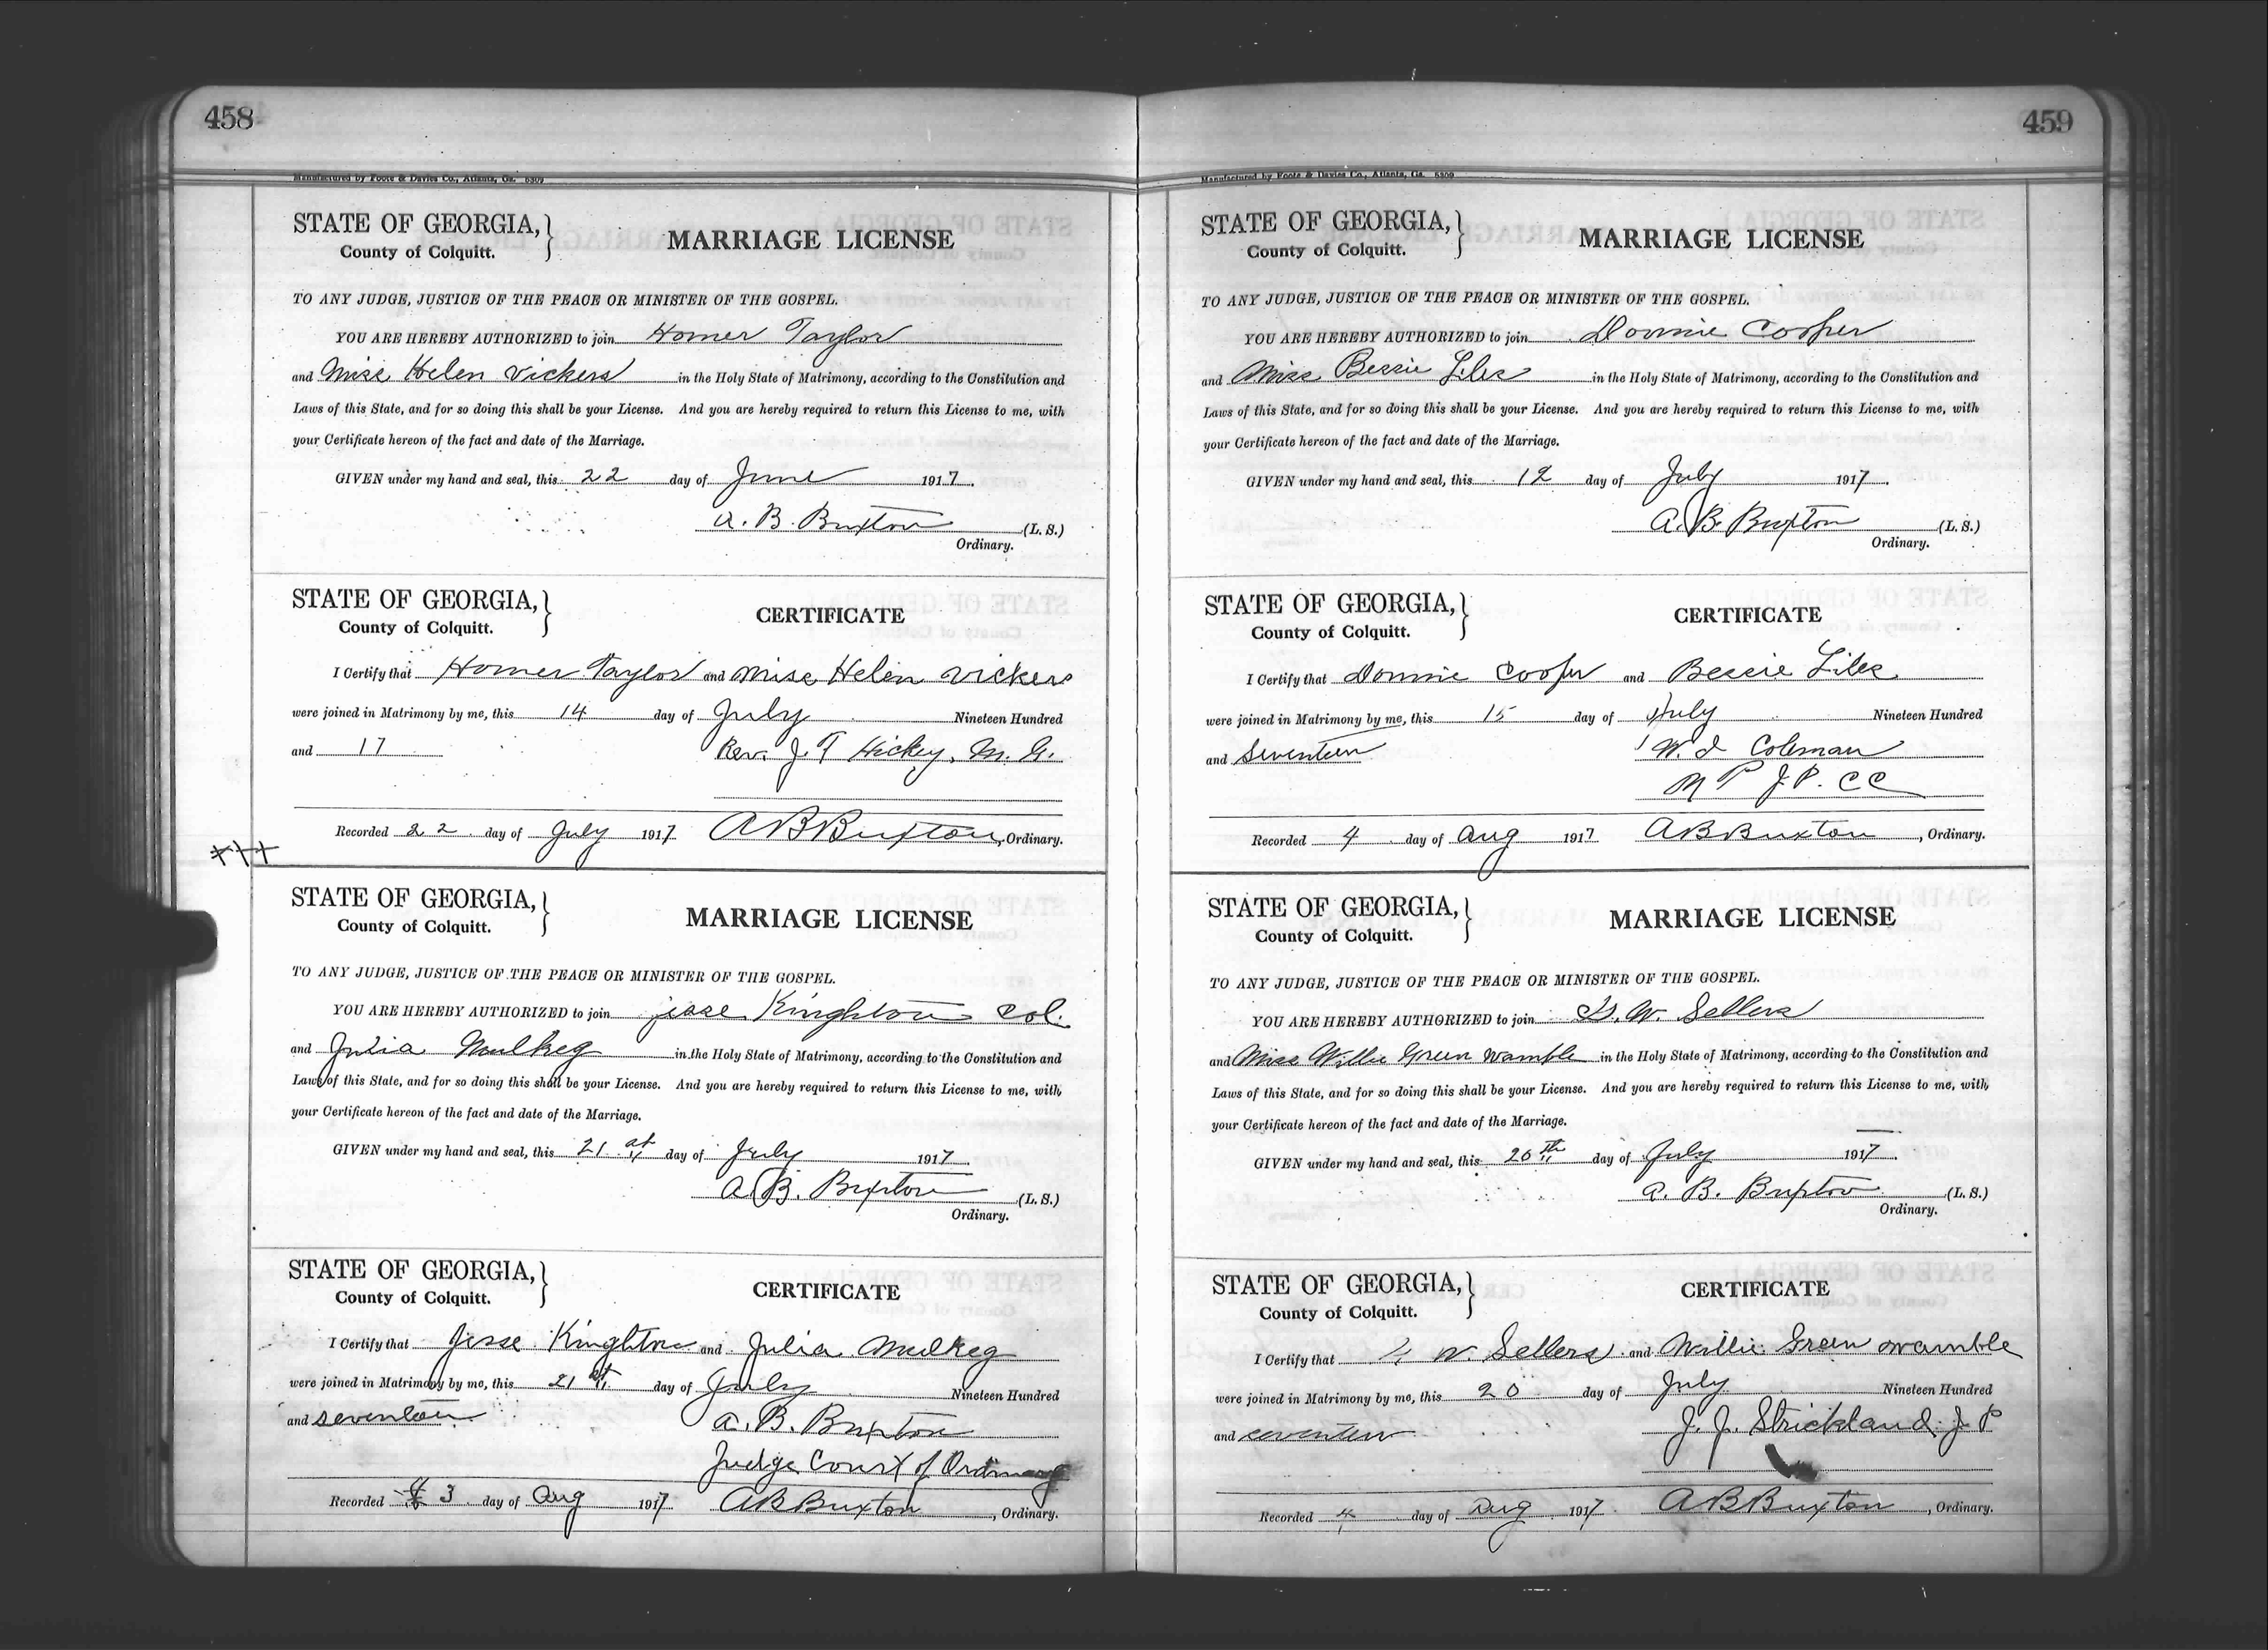 458
Manufactured by Foote & Davies Co., Atlanta, Ga. 5309
STATE OF GEORGIA,
County of Colquitt.
MARRIAGE LICENSE
TO ANY JUDGE, JUSTICE OF THE PEACE OR MINISTER OF THE GOSPEL.
YOU ARE HEREBY AUTHORIZED to join Homer Taylor
and Miss Helen Vickers in the Holy State of Matrimony, according to the Constitution and
Laws of this State, and for so doing this shall be your License. And you are hereby required to return this License to me, with
your Certificate hereon of the fact and date of the Marriage.
GIVEN under my hand and seal, this 22 day of June 1917.
A. B. Buxton (L. S.)
Ordinary.
STATE OF GEORGIA,
County of Colquitt.
CERTIFICATE
I Certify that Homer Taylor and Miss Helen Vickers
were joined in Matrimony by me, this 14 day of July Nineteen Hundred
and 17 Rev. J. T Hickey, M. G.
Recorded 22 day of July 1917. A B Buxton, Ordinary.
+++
STATE OF GEORGIA,
County of Colquitt.
MARRIAGE LICENSE
TO ANY JUDGE, JUSTICE OF THE PEACE OR MINISTER OF THE GOSPEL.
YOU ARE HEREBY AUTHORIZED to join Jesse Kinghton Col.
and Julia Mulkeg in the Holy State of Matrimony, according to the Constitution and
Laws of this State, and for so doing this shall be your License. And you are hereby required to return this License to me, with
your Certificate hereon of the fact and date of the Marriage.
GIVEN under my hand and seal, this 21 st day of July 1917.
A. B. Buxton (L. S.)
Ordinary.
STATE OF GEORGIA,
County of Colquitt.
CERTIFICATE
I Certify that Jesse Kinghton and Julia Mulkeg
were joined in Matrimony by me, this 21 st day of July Nineteen Hundred
and seventeen A. B. Buxton
Judge Court of Ordinary
Recorded 3 day of Aug 1917. A B Buxton, Ordinary.
459
Manufactured by Foote & Davies Co., Atlanta, Ga. 5309
STATE OF GEORGIA,
County of Colquitt.
MARRIAGE LICENSE
TO ANY JUDGE, JUSTICE OF THE PEACE OR MINISTER OF THE GOSPEL.
YOU ARE HEREBY AUTHORIZED to join Donnie Cooper
and Miss Bessie Liles in the Holy State of Matrimony, according to the Constitution and
Laws of this State, and for so doing this shall be your License. And you are hereby required to return this License to me, with
your Certificate hereon of the fact and date of the Marriage.
GIVEN under my hand and seal, this 12 day of July 1917.
A. B. Buxton (L. S.)
Ordinary.
STATE OF GEORGIA,
County of Colquitt.
CERTIFICATE
I Certify that Donnie Cooper and Bessie Liles
were joined in Matrimony by me, this 15 day of July Nineteen Hundred
and Seventeen W. I Coleman
N P J. P. C C
Recorded 4 day of Aug 1917. A B Buxton, Ordinary.
STATE OF GEORGIA,
County of Colquitt.
MARRIAGE LICENSE
TO ANY JUDGE, JUSTICE OF THE PEACE OR MINISTER OF THE GOSPEL.
YOU ARE HEREBY AUTHORIZED to join W. Sellers
and Miss Willie Green Wamble in the Holy State of Matrimony, according to the Constitution and
Laws of this State, and for so doing this shall be your License. And you are hereby required to return this License to me, with
your Certificate hereon of the fact and date of the Marriage.
GIVEN under my hand and seal, this 20th day of July 1917.
A. B. Buxton (L. S.)
Ordinary.
STATE OF GEORGIA,
County of Colquitt.
CERTIFICATE
I Certify that W. Sellers and Willie Green Wamble
were joined in Matrimony by me, this 20 day of July Nineteen Hundred
and seventeen J. J. Strickland J P
Recorded 4 day of Aug 1917. A B Buxton, Ordinary.